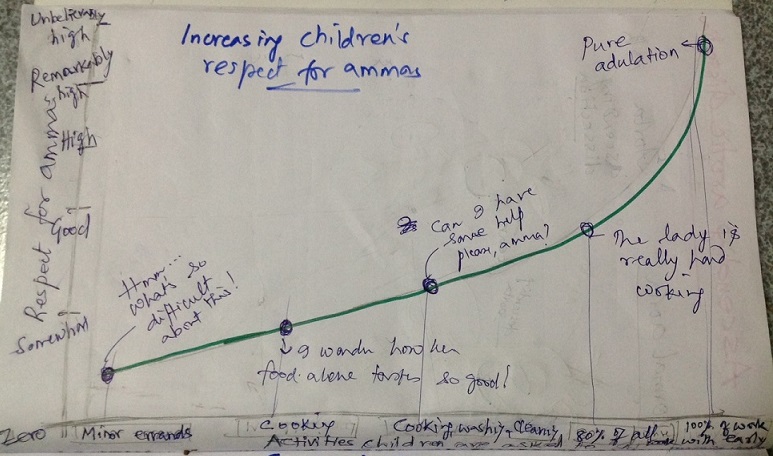 Unbelievably
high
Increasing children's
respect for ammas
Remarkably
high
High
Good
Somewhat
Zero
Respect for ammas
Pure
adulation
Can I have
some help
please, amma?
The lady is
really hard
cooking
Hmm...
what's so
difficult
about this!
I wonder how her
food alone tastes so good!
Minor errands
Cooking
Cooking, washing, cleaning
80% of all
100% of work
with early
Activities children are asked